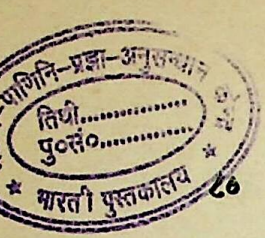 पाणिनि-प्रज्ञा-अनुसन्धान
तिथी................
पु०सं०................
* भारती पुस्तकालय *